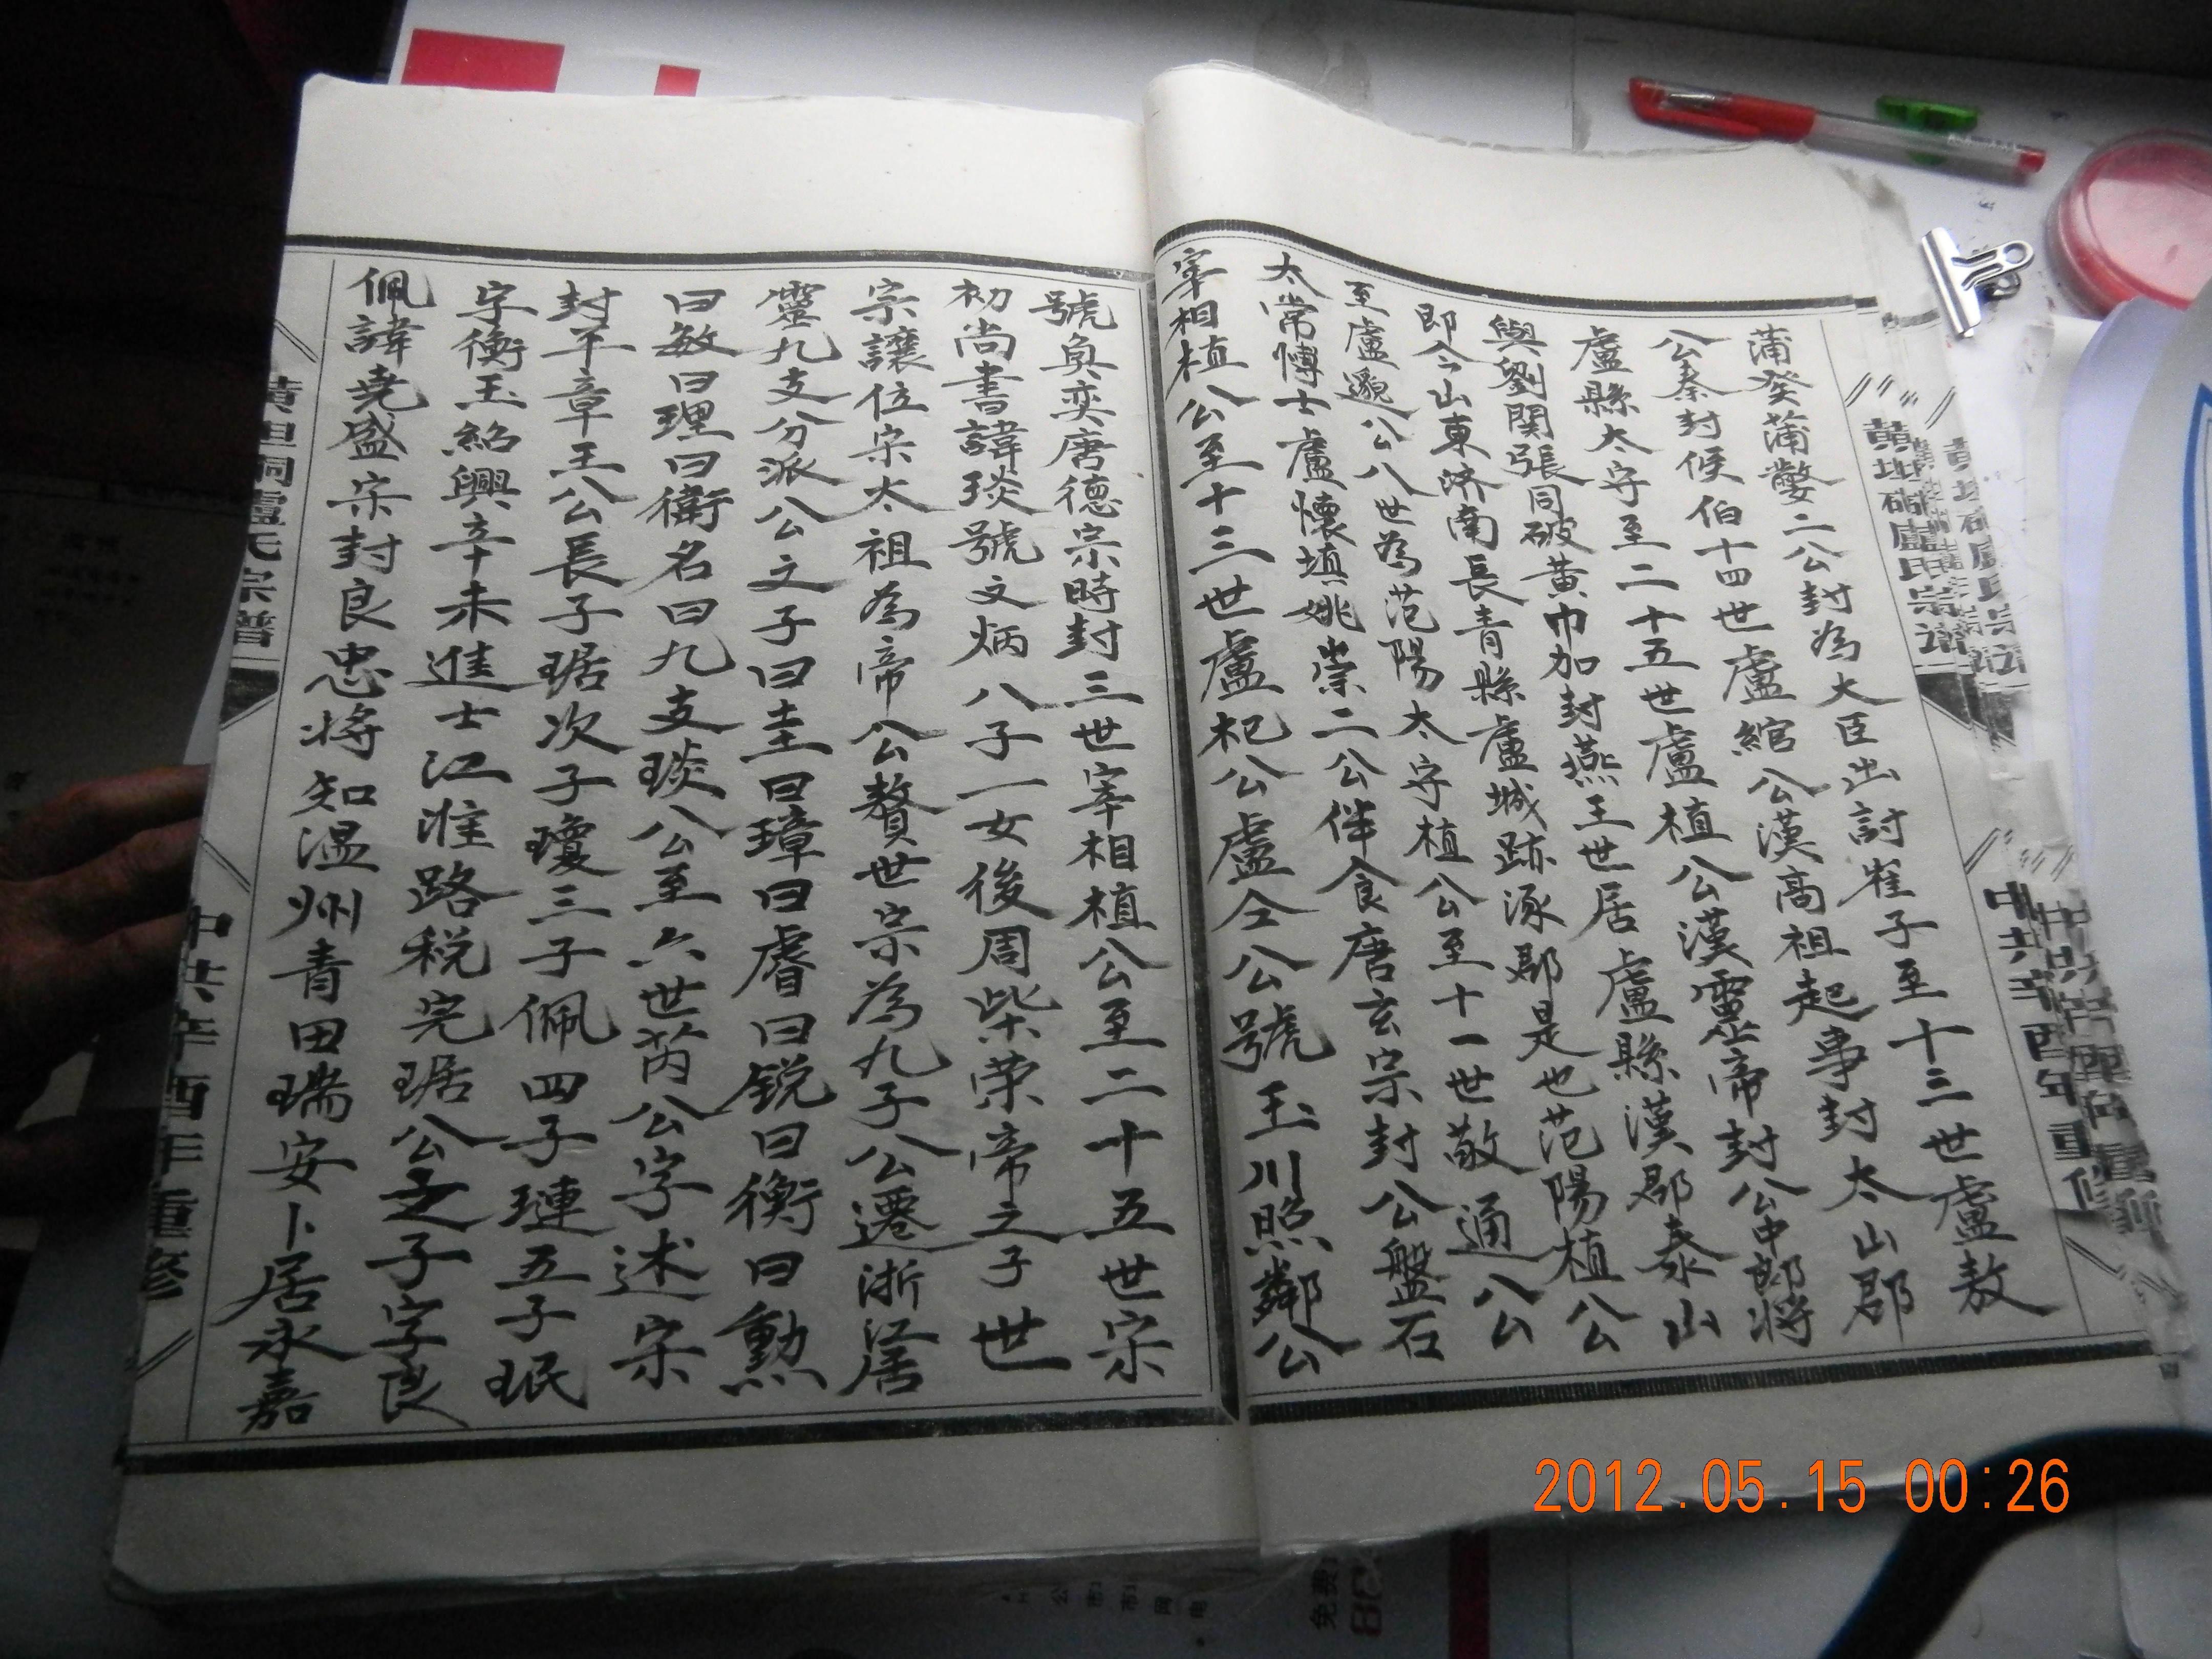 蒲癸蒲嫳二公封為大臣出討崔子至十三世盧敖
公秦封候伯十四世盧綰公漢高祖起事封太山郡
盧縣太守至二十五世盧植公漢靈帝封公中郎將
與劉関張同破黄巾加封燕王世居盧縣漢郡泰山
即今山東济南長青縣盧城跡涿郡是也范陽植公
至盧邈公八世為范陽太守植公至十一世敬通公
太常愽士盧懷填姚崇二公伴食唐玄宗封公盤石
宰相植公至十三世盧杞公盧仝公號玉川照鄰公
號奐奕唐德宗時封三世宰相植公至二十五世宗
初尚書諱琰號文炳八子一女後周柴荣帝之子世
宗讓位宋太祖為帝公贅世宗為九子公遷浙居
靈九支分派公文子曰圭曰璋曰睿曰銳曰衡曰勲
曰敏曰理曰衛名曰九支琰公至六世芮公字述宋
封平章王公長子琚次子瓊三子佩四子璉五子珉
字衡玉紹興辛未進士江淮路税完琚公之子字良
佩諱堯盛宋封良忠将知温州青田瑞安卜居永嘉
黄坦硐盧氏宗譜
中共辛酉年重修
黄坦硐盧氏宗譜
中共辛酉年重修
2012.05.15 00:26